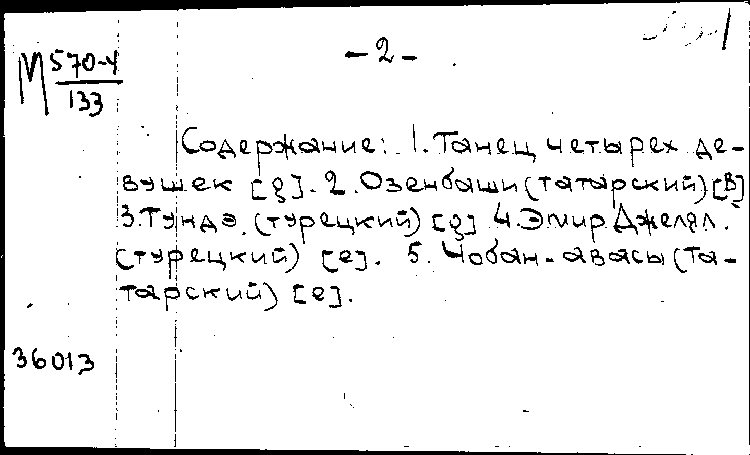 – 2 –
М 570-4
133
Содержание: 1. Танец четырех де-
вушек [g]. 2. Озенбаши (татарский) [В]
3. Тундэ. (турецкий) [g] 4. Эмир Джелял.
(турецкий) [e]. 5. Чобан-авасы (та-
тарский) [e].
36013